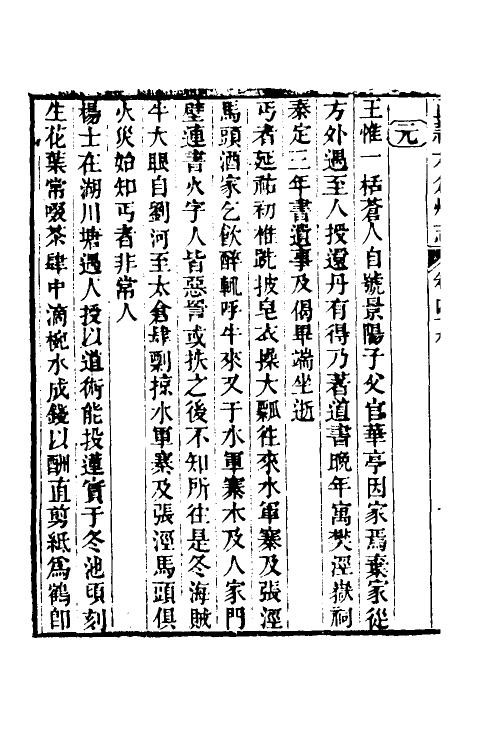 元
王惟一栝蒼人自號景陽子父官華亭因家焉棄家從
方外遇至人授還丹有得乃著道書晚年寓樊涇嶽祠
泰定三年書遺事及偈畢端坐逝
丐者延祐初椎跣披皂衣操大瓢往來水軍寨及張涇
馬頭酒家乞飲醉輒呼牛來又于水軍寨木及人家門
壁連書火字人皆惡詈或抶之後不知所往是冬海賊
牛大眼自劉河至太倉肆剽掠水軍寨及張涇馬頭俱
火災始知丐者非常人
楊士在湖川塘遇人授以道術能投蓮實于冬池頃刻
生花葉常啜茶肆中滴椀水成錢以酬直剪紙爲鶴卽